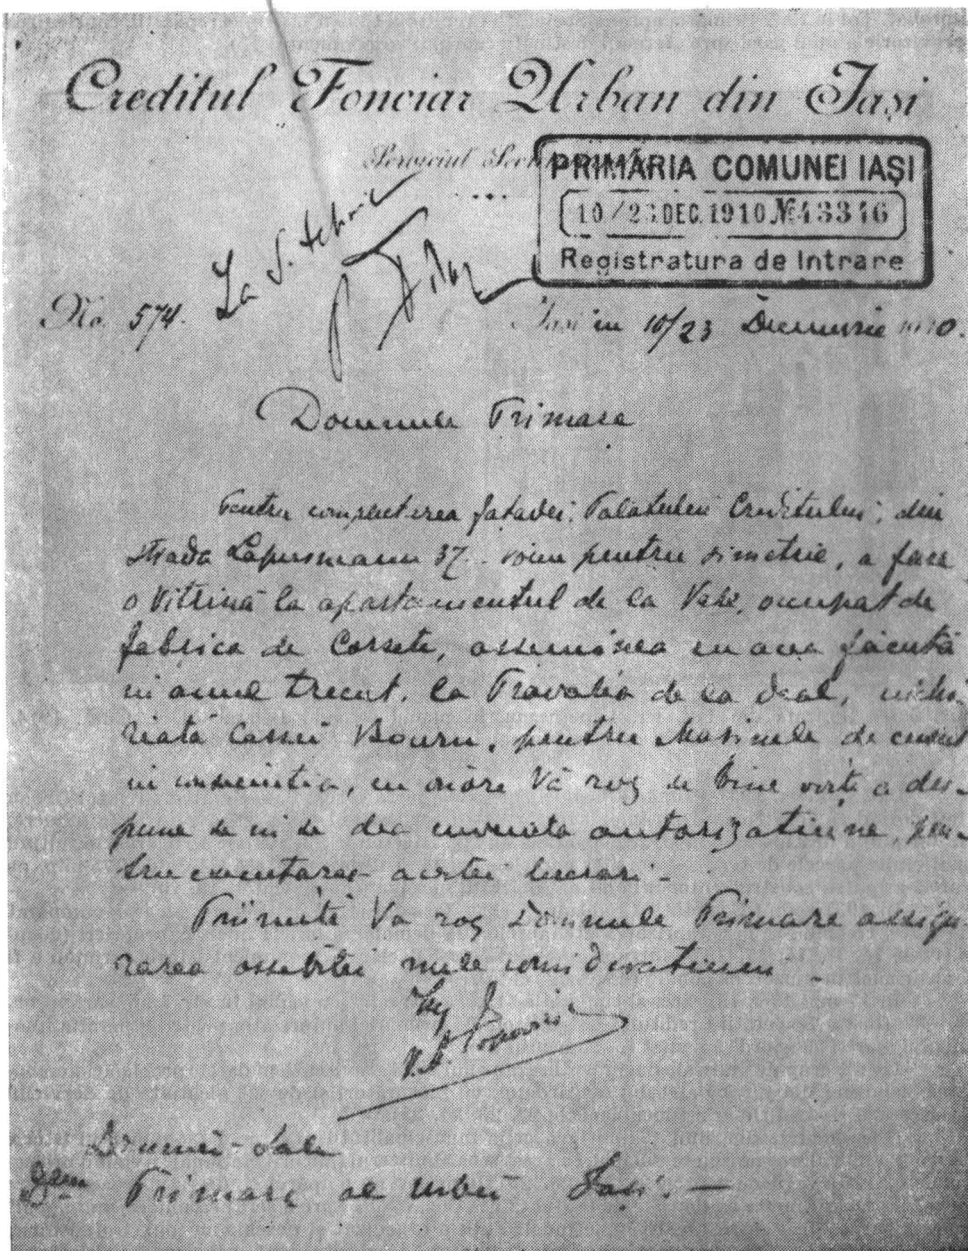 Creditul Fonciar Urban din Iași
Serviciul
PRIMĂRIA COMUNEI IAȘI
10/23 DEC. 1910 № 43346
Registratura de Intrare
La S. tehnic
No. 574.
Iași în 10/23 Decemvrie 1910.
Domnule Primare
Pentru completarea fațadei Palatului Creditului, din
strada Lăpușneanu 37 voim pentru simetrie, a face
o Vitrină la apartamentul de la Vale, ocupat de
fabrica de Corsete, assemenea cu acea făcută
în anul trecut, la Travalia de la deal, închi-
riată Casei Bourn, pentru Masinele de cusut
în consecința, cu onore Vă rog se bine voiți a dis-
pune se ni se dea cuvenita autorizațiune, pen-
tru executarea acestei lucrări -
Priimiți Vă rog Domnule Primare assigu-
rarea ossebitei mele considerațiuni
Ing
V.A. Popovici
Domniei-Sale
Dlui Primare al Urbei Iași. —